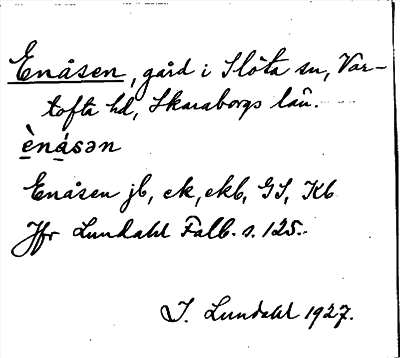 Enåsen, gård i Slöta sn, Var-
tofta hd, Skaraborgs län.
ènásən
Enåsen jb, ek, ekb, GS, Kb
Jfr Lundahl Falb. s. 125.
I. Lundahl 1927.